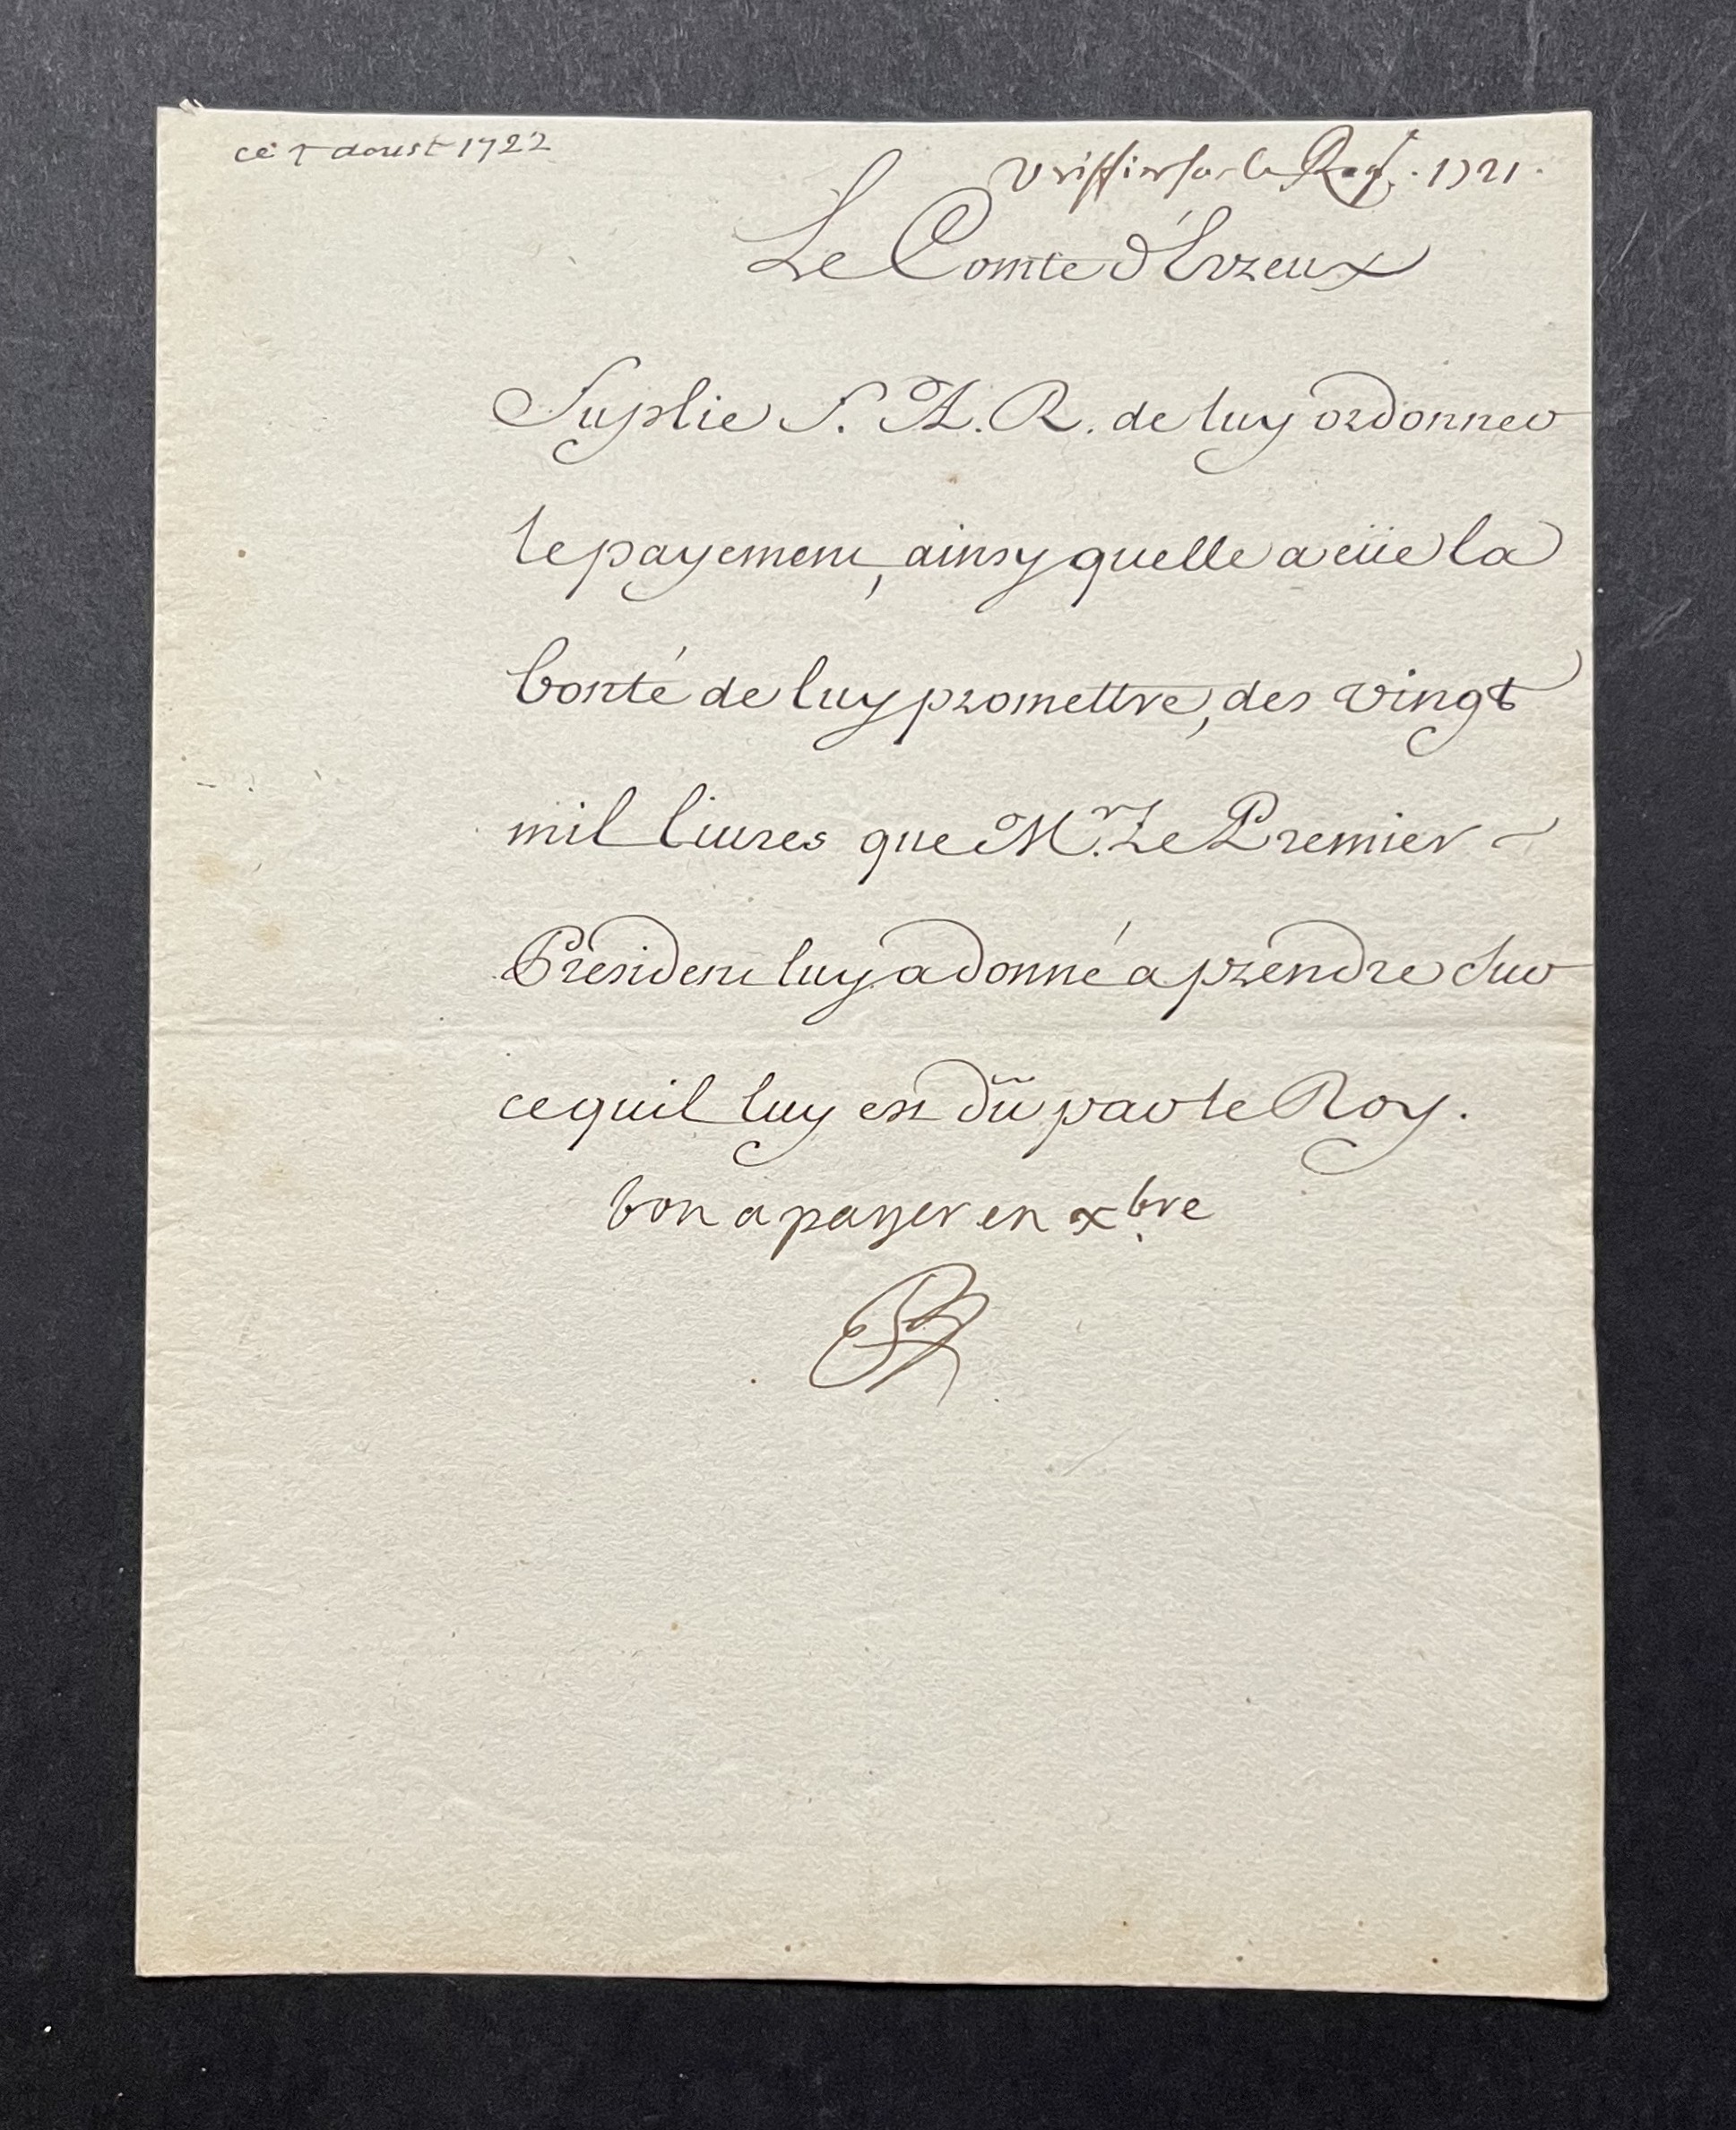 ce 7 doust 1722
Veriffier sur le Reg. 1721.
Le Comte d'Evreux
Suplie S. A. R. de luy ordonner
le payement, ainsy quelle a eüe la
bonté de luy promettre, des vingt
mil livres que Mr. Le Premier
President luy a donné a prendre sur
ce quil luy est dû par le Roy.
bon a payer en xbre